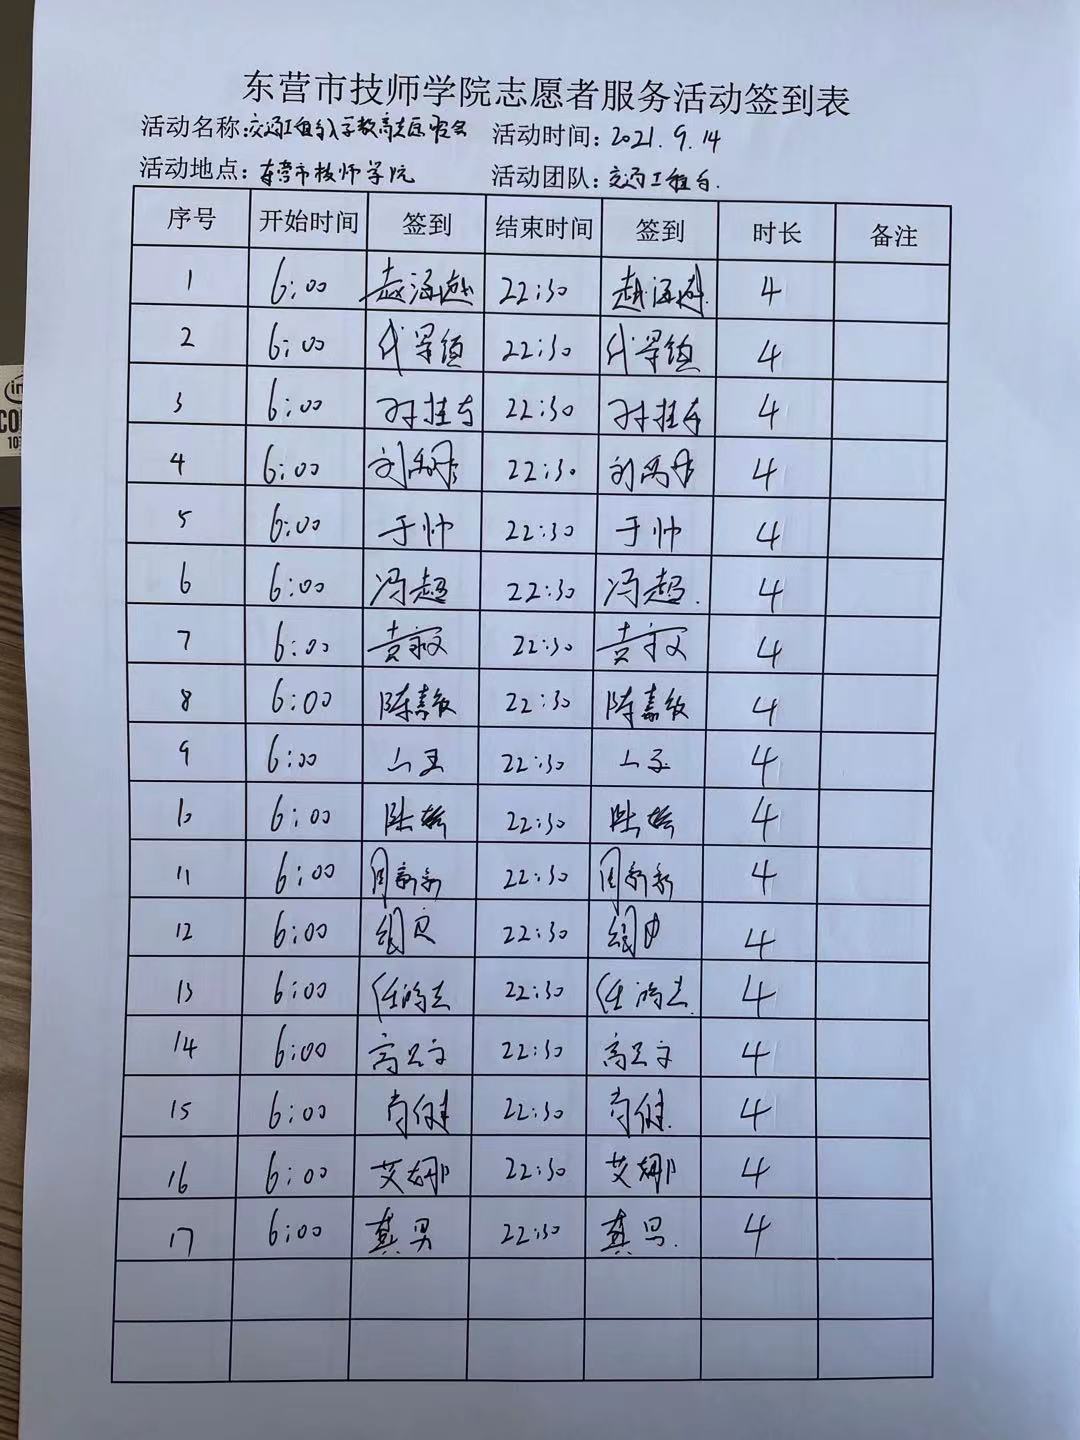 东营市技师学院志愿者服务活动签到表
活动名称: 活动时间: 2021.9.14
活动地点: 东营市技师学院 活动团队: 交通工程
序号 开始时间 签到 结束时间 签到 时长 备注
1 6:00 赵海越 22:30 赵海越 4
2 6:00 22:30 4
3 6:00 22:30 4
4 6:00 刘 22:30 刘 4
5 6:00 于帅 22:30 于帅 4
6 6:00 冯超 22:30 冯超. 4
7 6:00 22:30 4
8 6:00 陈嘉敏 22:30 陈嘉敏 4
9 6:00 22:30 4
10 6:00 22:30 4
11 6:00 周新新 22:30 周新新 4
12 6:00 22:30 4
13 6:00 任鸿志 22:30 任鸿志 4
14 6:00 高 22:30 高 4
15 6:00 肖健 22:30 肖健 4
16 6:00 艾娜 22:30 艾娜 4
17 6:00 真男 22:30 真男. 4
in
CO
10